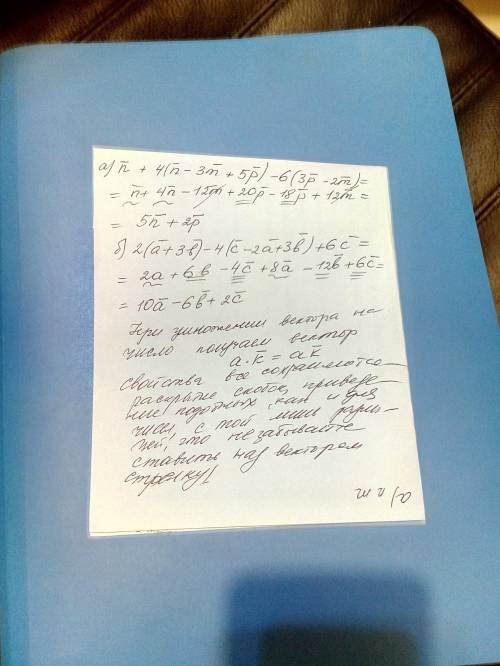 а) n̅ + 4(n̅ - 3m̅ + 5p̅) - 6(3p̅ - 2m̅) =
= n̅ + 4n̅ - 12m̅ + 20p̅ - 18p̅ + 12m̅ =
= 5n̅ + 2p̅
б) 2(a̅ + 3b̅) - 4(c̅ - 2a̅ + 3b̅) + 6c̅ =
= 2a̅ + 6b̅ - 4c̅ + 8a̅ - 12b̅ + 6c̅ =
= 10a̅ - 6b̅ + 2c̅
При умножении вектора на
число получаем вектор
a · k̅ = ak̅
Свойства все сохраняются
раскрытие скобок, приведе-
ние подобных, как и для
чисел, с той лишь разни-
цей, что не забывайте
ставить над вектором
стрелку!